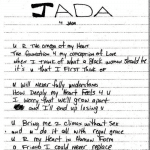 JADA
4 JADA
U R The omega of my Heart
The foundation 4 my conception of Love
when I think of what a Black woman should be
it's u that I First think of
U will never fully understand
How Deeply my Heart Feels 4 U
I worry that we'll grow apart
and I'll end up losing U
U Bring me 2 climax without sex
and u do it all with regal grace
U R my Heart in Human Form
a Friend I could never replace